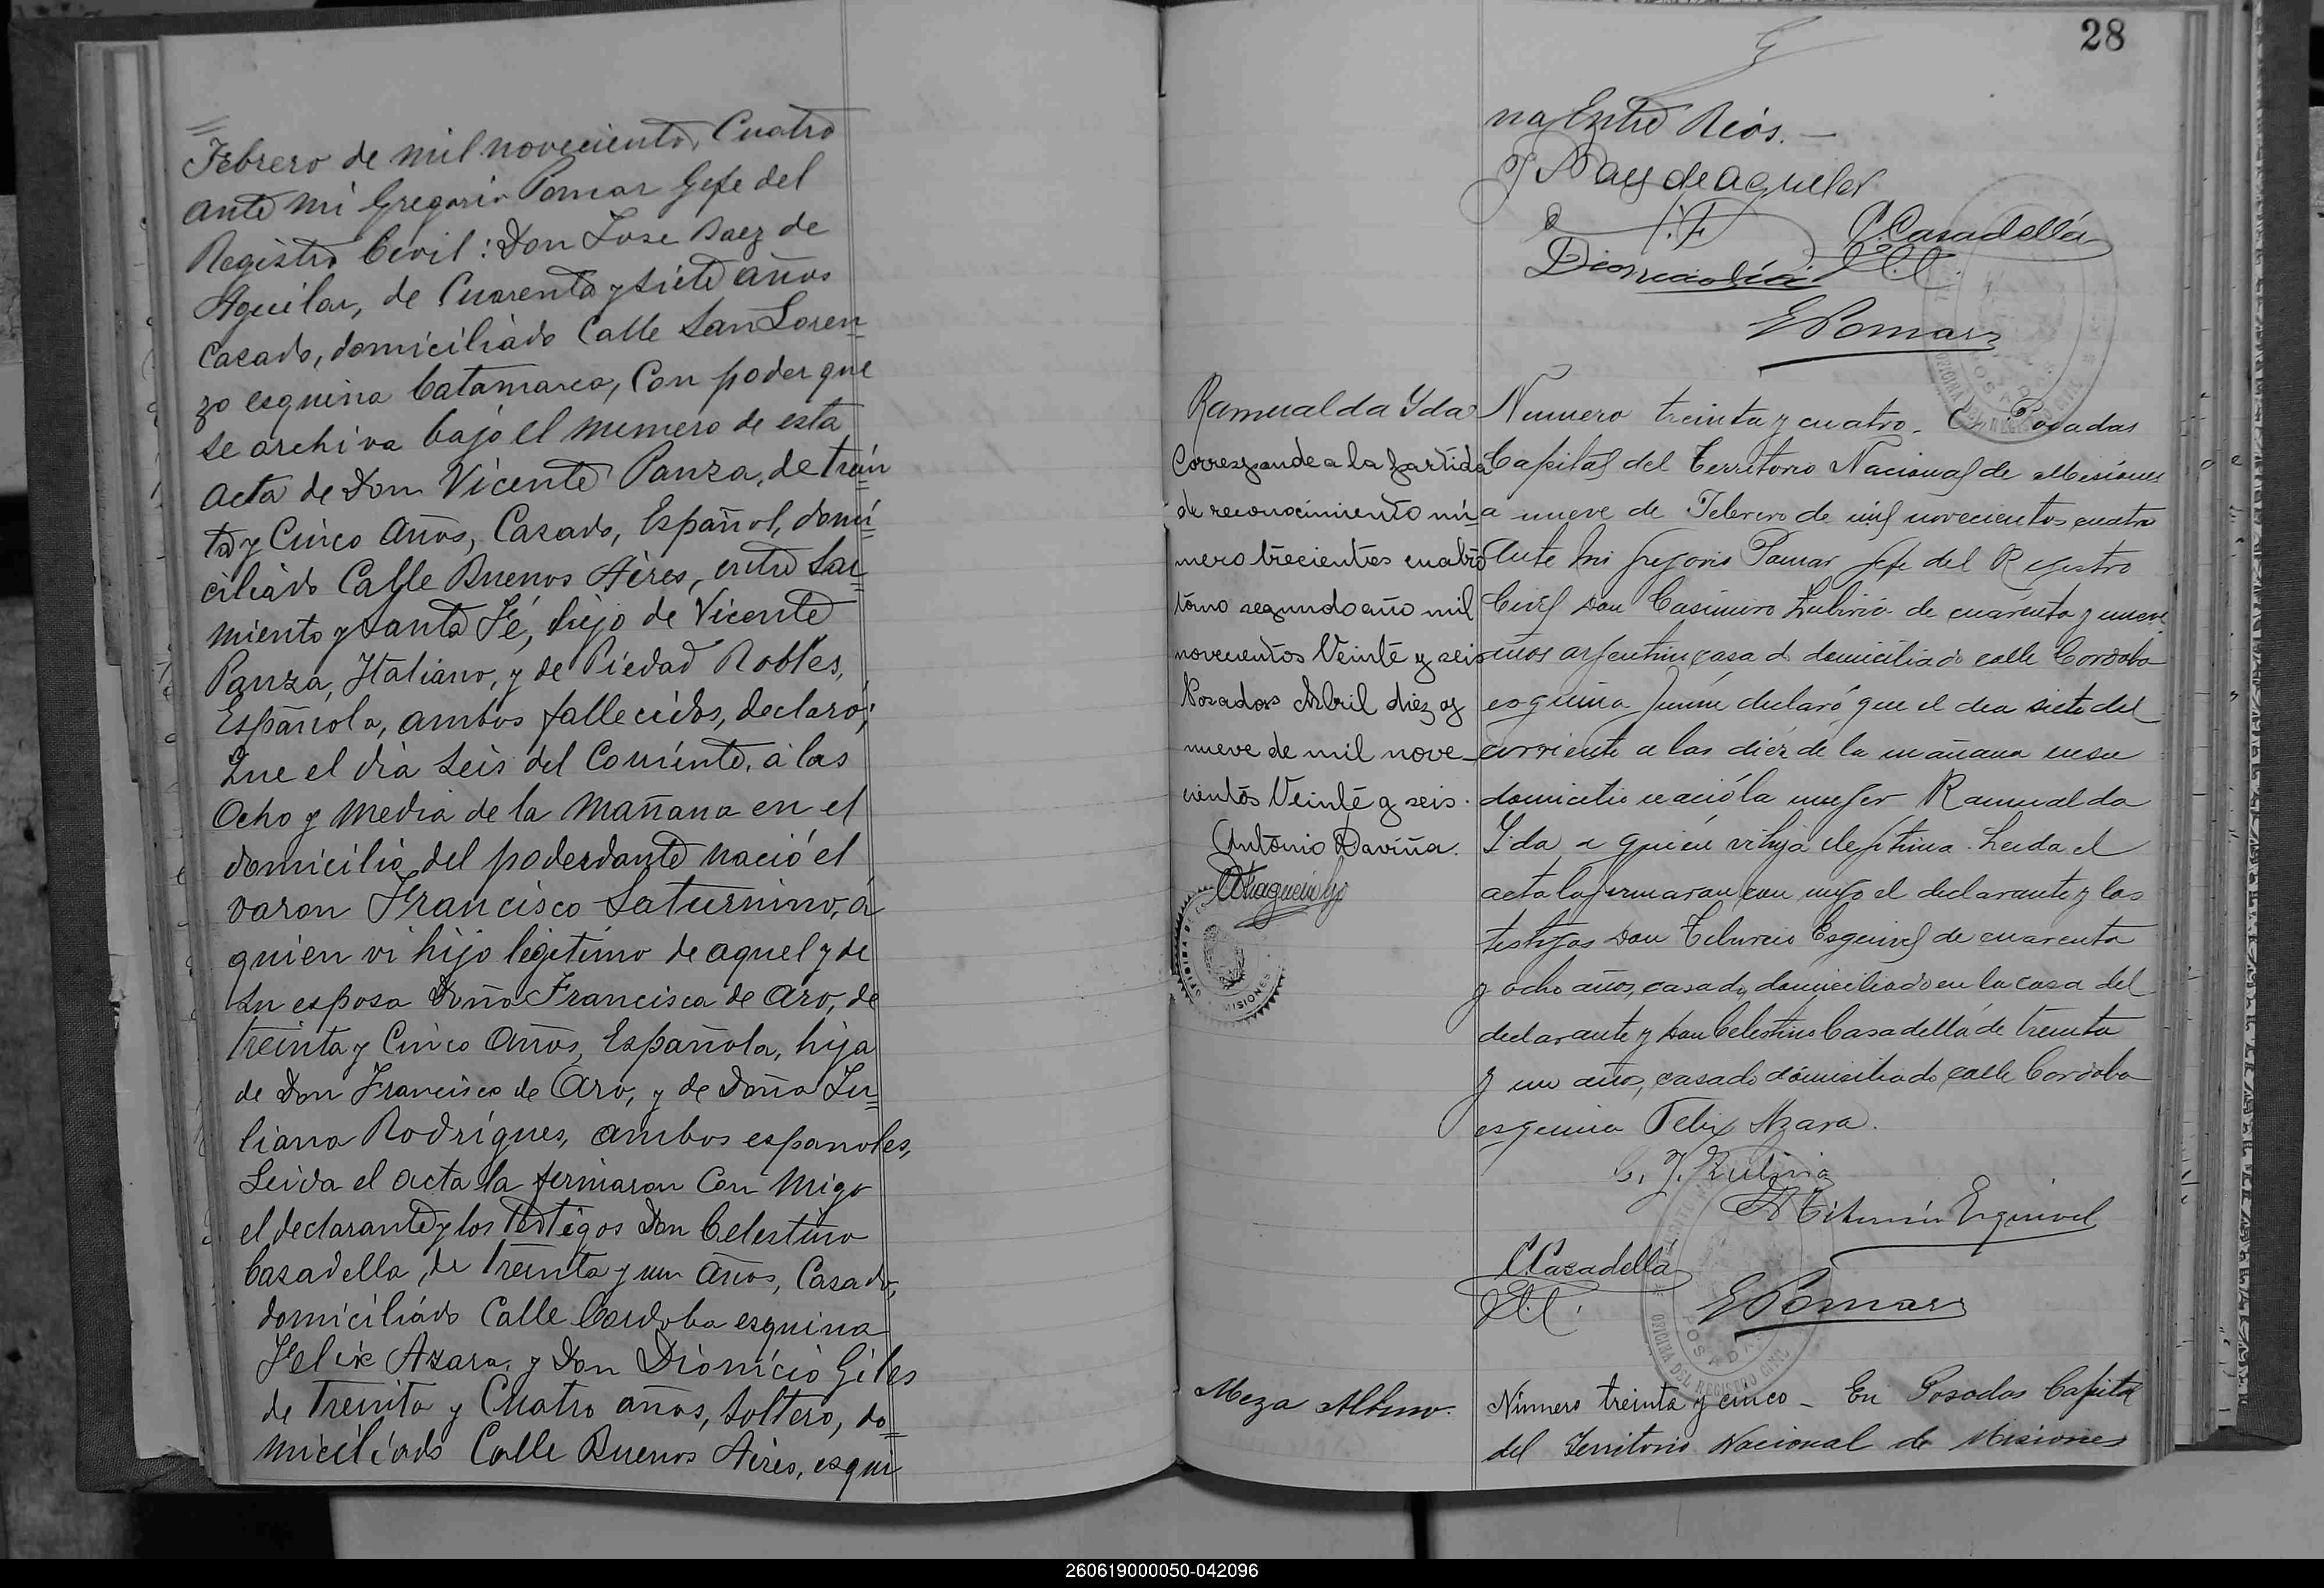 Febrero de mil novecientos Cuatro
ante mi Gregorio Pomar Gefe del
Registro Civil: Don Jose Baez de
Aguilar, de Cuarenta y siete años
Casado, domiciliado Calle San Loren=
zo esquina Catamarca, Con poder que
se archiva bajo el numero de esta
acta de Don Vicente Panza, de trein=
ta y Cinco años, Casado, Español, domi=
ciliado Calle Buenos Aires, entre Sar=
miento y Santa Fé, hijo de Vicente
Panza, Italiano, y de Piedad Robles,
Española, ambos fallecidos, declaró;
Que el dia seis del Corriente, á las
Ocho y media de la mañana en el
domicilio del poderdante nació el
varon Francisco Saturnino, á
quien vi hijo legitimo de aquel y de
su esposa Doña Francisca de Aro, de
treinta y Cinco años, Española, hija
de Don Francisco de Aro, y de Doña Ju=
liana Rodrigues, ambos españoles,
Leida el acta la firmaron Con migo
el declarante y los testigos Don Celestino
Casadella, de treinta y un años, Casado,
domiciliado Calle Cordoba esquina
Felix Azara, y Don Dionicio Giles
de treinta y Cuatro años, soltero, do=
miciliado Calle Buenos Aires, esqui
28
na Entre Rios. —
J Baez de Aguilar
C. Casadellá
GPomar
Ramualda Yda
Corresponde a la partida
de reconocimiento nú
mero trecientos cuatro
tomo segundo año mil
novecientos Veinte y seis
Posadas Abril diez y
nueve de mil nove
cientos Veinte y seis.
Antonio Daviña.
OFICINA DE
MISIONES
Numero treinta y cuatro. En Posadas
Capital del Territorio Nacional de Misiones
a nueve de Febrero de mil novecientos cuatro
Ante mi Gregorio Pomar Jefe del Registro
Civil Don Casimiro Lubirio de cuarenta y nueve
años argentino casado domiciliado calle Cordoba
esquina Junin declaró que el dia siete del
corriente a las diez de la mañana en su
domicilio nació la mujer Ramualda
Yda a quien vi hija lejitima. Leida el
acta la firmaron con migo el declarante y los
testigos Don Tiburcio Esquivel de cuarenta
y ocho años, casado, domiciliado en la casa del
declarante y Don Celestino Casadellá de treinta
y un años, casado domiciliado calle Cordoba
esquina Felix Azara.
Esquivel
C Casadellá
GPomar
OFICINA DEL REGISTRO CIVIL
POSADAS
Meza Albino.
Número treinta y cinco - En Posadas Capital
del Territorio Nacional de Misiones
260619000050-042096